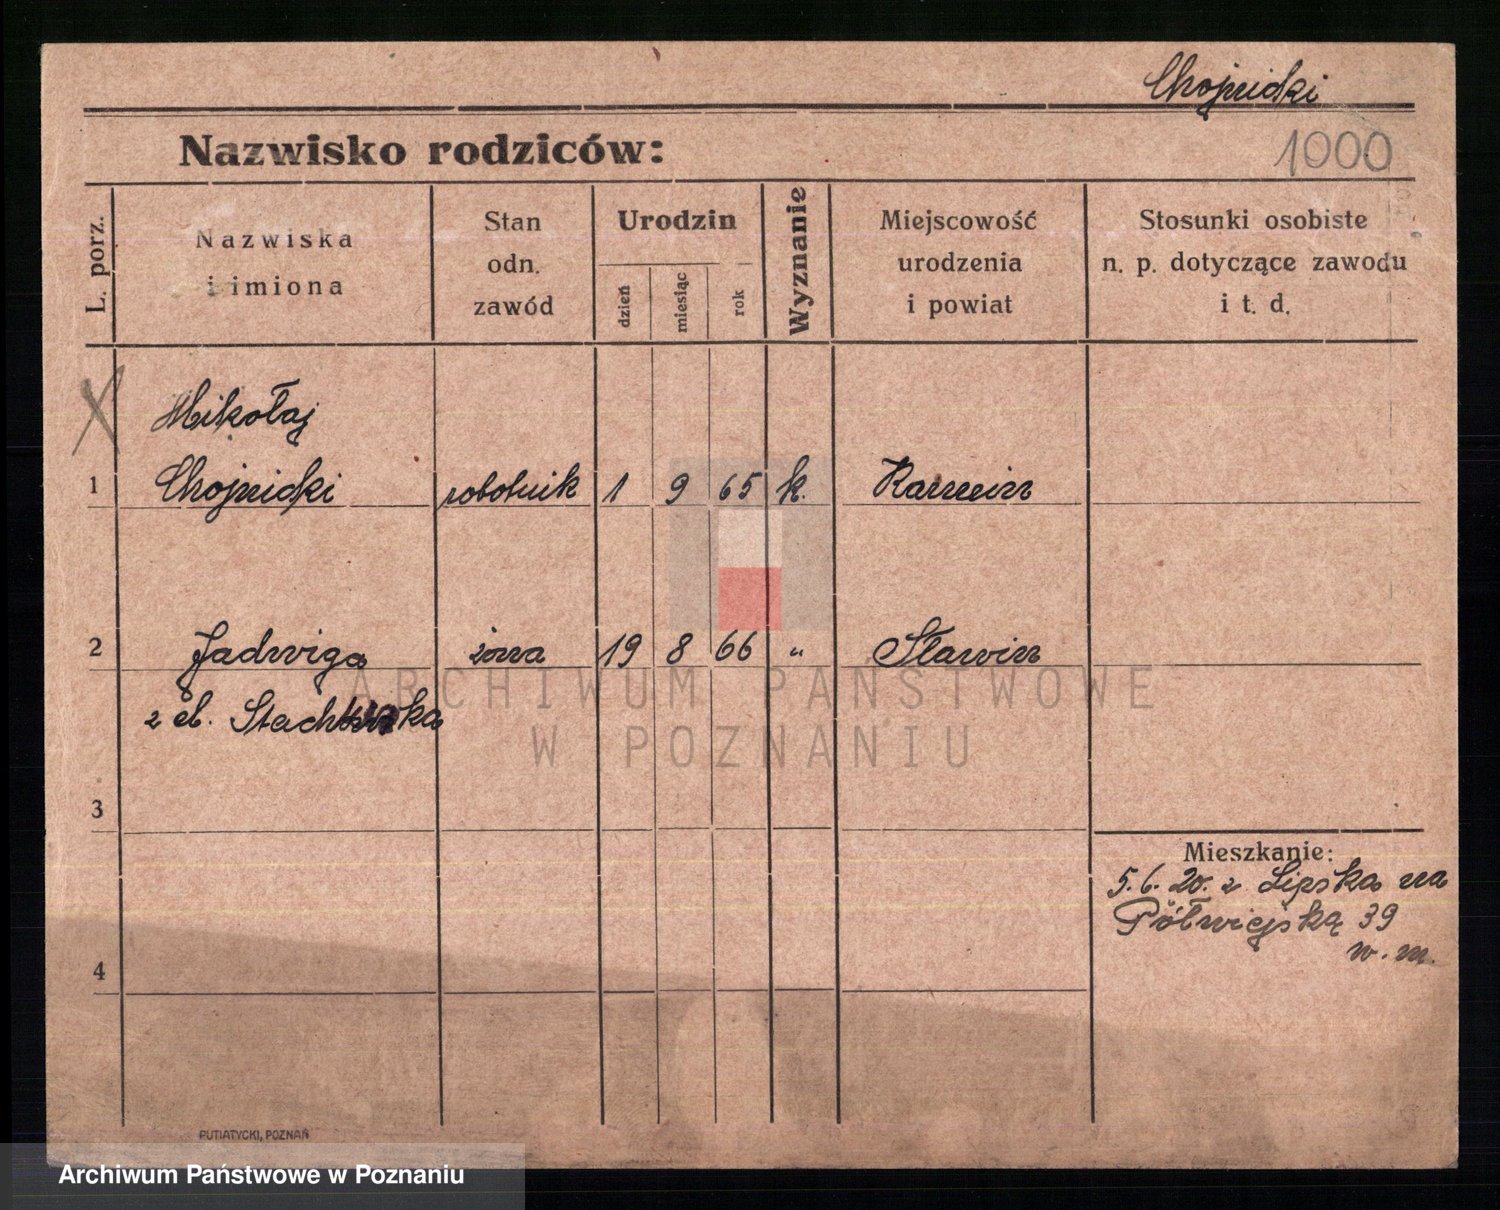 Chojnicki
Nazwisko rodziców:
1000
L. porz.
Nazwiska
i imiona
Stan
odn.
zawód
Urodzin
dzień
miesiąc
rok
Wyznanie
Miejscowość
urodzenia
i powiat
Stosunki osobiste
n. p. dotyczące zawodu
i t. d.
X
Mikołaj
1 Chojnicki robotnik 1 9 65 k. Karmin
2 Jadwiga żona 19 8 66 " Sławin
z d.
3
Mieszkanie:
5.6.20. z Lipska na
Półwiejską 39
w. m.
4
PUTIATYCKI, POZNAŃ
ARCHIWUM PAŃSTWOWE
W POZNANIU
Archiwum Państwowe w Poznaniu